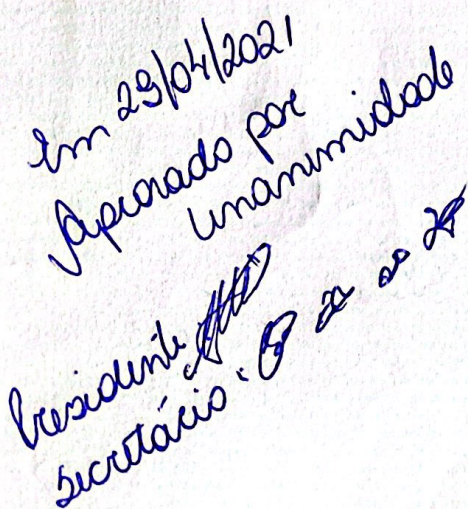 Em 29/04/2021
Aprovado por
unanimidade
Presidente
Secretário.